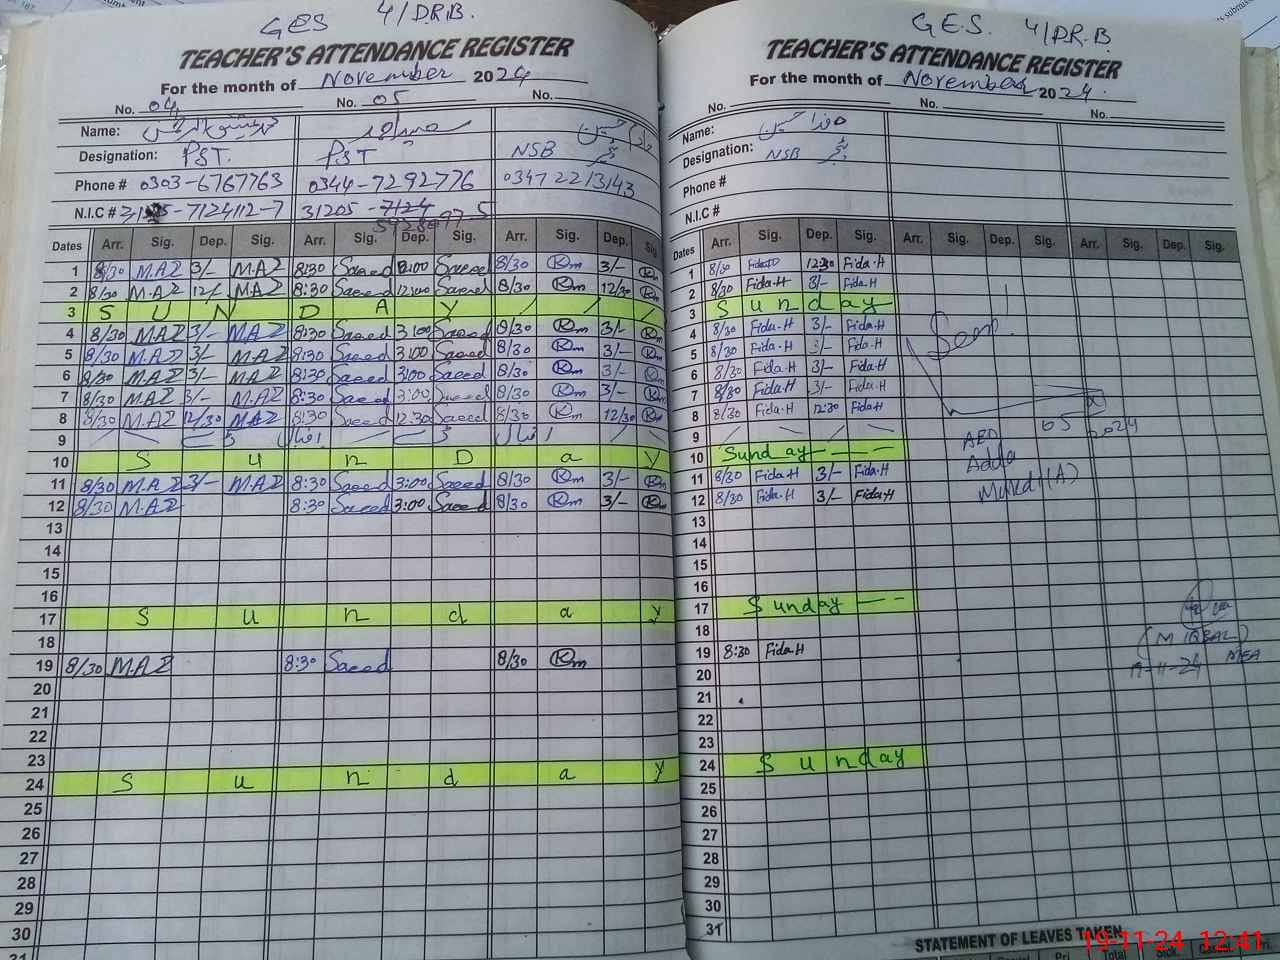 GES 4/D.R.B.
TEACHER'S ATTENDANCE REGISTER
For the month of November 2024
No. 04 No. 05 No.
Name:
Designation: PST. PST NSB
Phone # 0303-6767763 0344-7292776 0347 2213143
N.I.C # 7124112-7 31205-7124
Dates Arr. Sig. Dep. Sig. Arr. Sig. Dep. Sig. Arr. Sig. Dep. Sig
1 8/30 M.AZ 3/- M.AZ 8:30 Saeed Saeed 8/30 Km 3/- Km
2 8/30 M.AZ 12/- MAZ 8:30 Saeed 12:00 Saeed 8/30 Km 12/30 Km
3 S U N D A Y / / /
4 8/30 MAZ 3/- MAZ 8:30 Saeed 3:00 Saeed 8/30 Km 3/- Km
5 8/30 M.AZ 3/- MAZ 8:30 Saeed 3:00 Saeed 8/30 Km 3/- Km
6 8/30 MAZ 3/- MAZ 8:30 Saeed 3:00 Saeed 8/30 Km 3/- Km
7 8/30 M.AZ 3/- M.AZ 8:30 Saeed 3:00 Saeed 8/30 Km 3/- Km
8 8/30 M.AZ 12/30 MAZ 8:30 Saeed 12:30 Saeed 8/30 Km 12/30 Km
9
10 S u n D a y
11 8/30 M.AZ 3/- MAZ 8:30 Saeed 3:00 Saeed 8/30 Km 3/- Km
12 8/30 M.AZ 8:30 Saeed 3:00 Saeed 8/30 Km 3/- Km
13
14
15
16
17 S u n d a y
18
19 8/30 MAZ 8:30 Saeed 8/30 Km
20
21
22
23
24 S u n d a y
25
26
27
28
29
30
31
G.E.S. 4/D.R.B
TEACHER'S ATTENDANCE REGISTER
For the month of November 2024.
No. No. No.
Name:
Designation: NSB
Phone #
N.I.C #
Dates Arr. Sig. Dep. Sig. Arr. Sig. Dep. Sig. Arr. Sig. Dep. Sig.
1 8/30 12:30 Fida.H
2 8/30 Fida.H 3/- Fida.H
3 S u n d a y
4 8/30 Fida.H 3/- Fida.H
5 8/30 Fida.H 3/- Fida.H
6 8/30 Fida.H 3/- Fida.H
7 8/30 Fida.H 3/- Fida.H
8 8/30 Fida.H 12:30 Fida.H
Seen.
9
10 Sunday
11 8/30 Fida.H 3/- Fida.H
12 8/30 Fida.H 3/- Fida.H
AEO
Adda
(A)
13
14
15
16
17 Sunday
18
19 8:30 Fida.H
(M IQBAL)
19-11-24 MEA
20
21
22
23
24 S u n d a y
25
26
27
28
29
30
31
STATEMENT OF LEAVES TAKEN
19-11-24 12:41